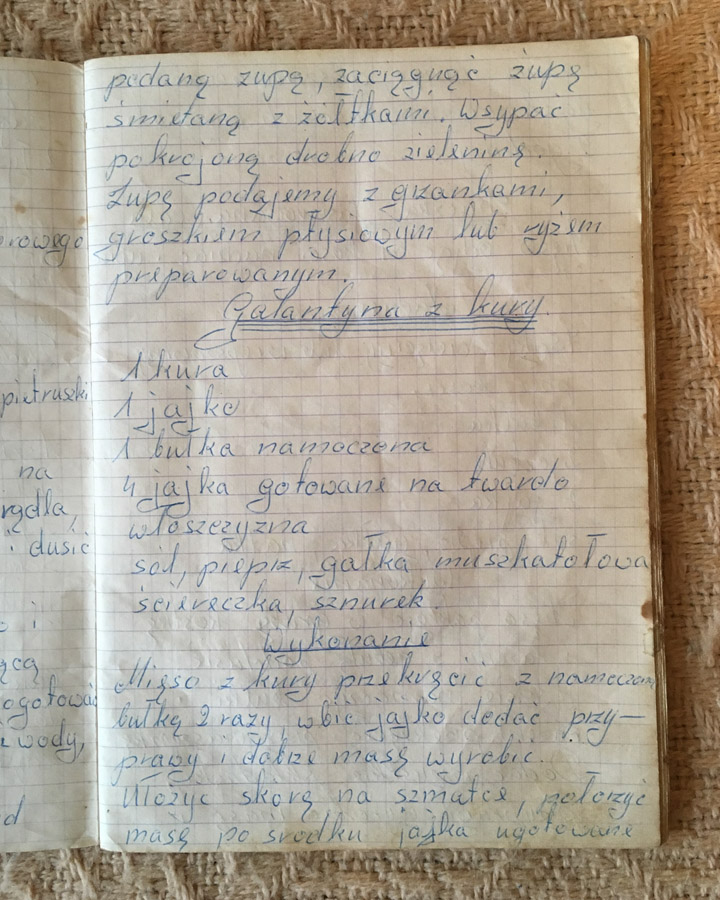 rowego
pietruszki
na
i dusić
i
wody,
podaną zupę, zaciągnąć zupę
śmietaną z żółtkami. Wsypać
pokrojoną drobno zieleninę.
Zupę podajemy z grzankami,
groszkiem ptysiowym lub ryżem
preparowanym.
Galantyna z kury.
1 kura
1 jajko
1 bułka namoczona
4 jajka gotowane na twardo
włoszczyzna
sól, pieprz, gałka muszkatołowa
ściereczka, sznurek.
Wykonanie
Mięso z kury przekręcić z namoczoną
bułką 2 razy, wbić jajko dodać przy-
prawy i dobrze masę wyrobić.
Ułożyć skórę na szmatce, położyć
masę po środku jajka ugotowane